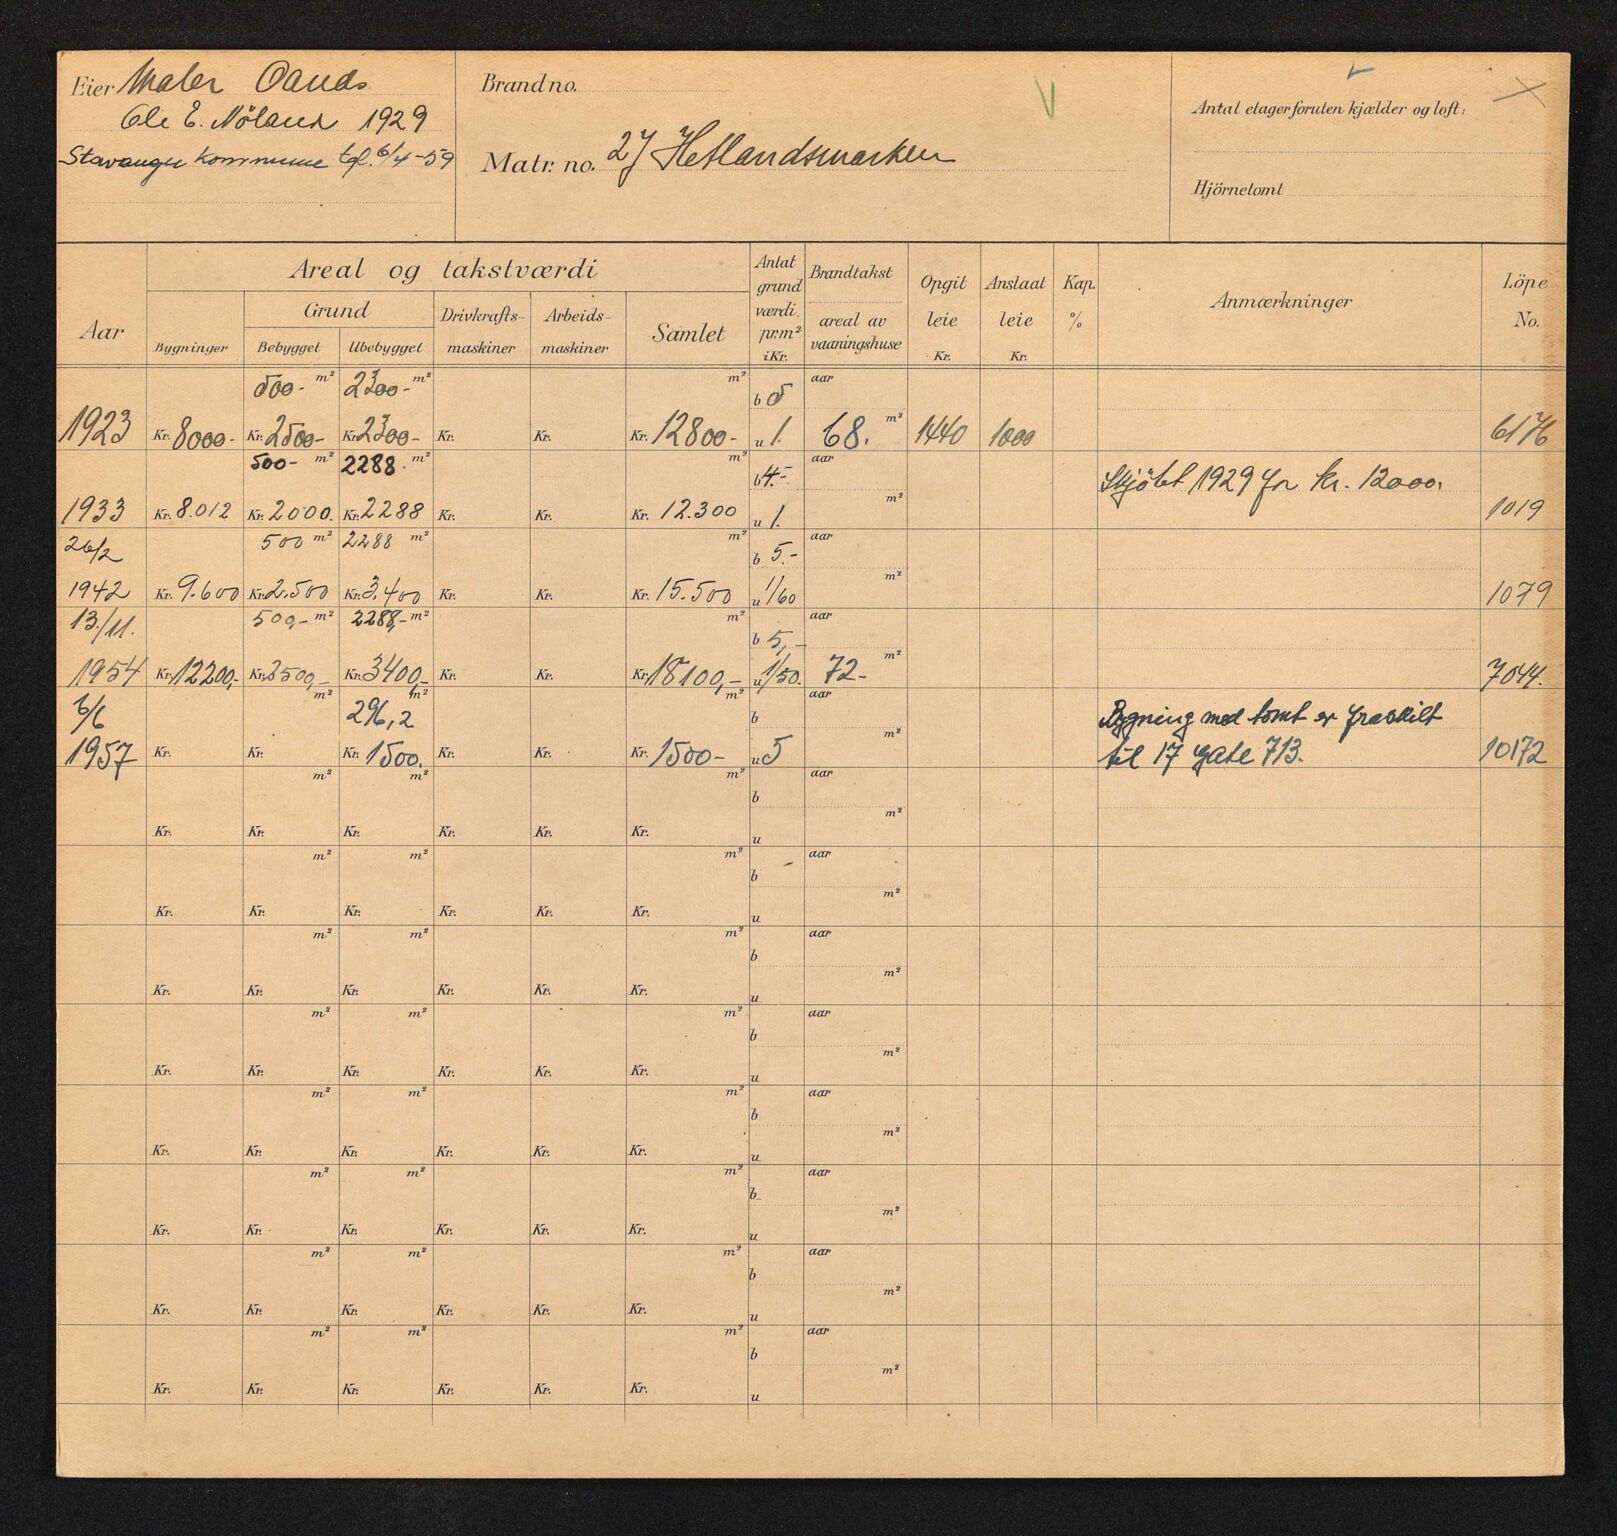 Eier Maler Oands
Ole E. Nöland 1929
Stavanger kommune tgl. 6/4-59
Brand no.
Matr. no. 27 Hetlandsmarken
Antal etager foruten kjælder og loft:
Hjörnetomt
Aar
Areal og takstværdi
Bygninger
Grund
Bebygget Ubebygget
Drivkrafts-
maskiner
Arbeids-
maskiner
Samlet
Antat
grund
værdi.
pr.m²
i Kr.
Brandtakst
areal av
vaaningshuse
Opgit
leie
Kr.
Anslaat
leie
Kr.
Kap.
%
Anmærkninger
Löpe
No.
500- m² 2300- m² m² b 5 aar
1923 Kr. 8000- Kr. 2500- Kr. 2300- Kr. Kr. Kr. 12800- u 1. 68. m² 1440 1000 6176
500- m² 2288- m² m² b 4.- aar Skjöbt 1929 for kr. 12000.
1933 Kr. 8.012 Kr. 2000. Kr. 2288 Kr. Kr. Kr. 12.300 u 1. m² 1019
26/2 500 m² 2288 m² m² b 5.- aar
1942 Kr. 9.600 Kr. 2.500 Kr. 3.400 Kr. Kr. Kr. 15.500 u 1/60 m² 1079
13./11. 500,- m² 2288,- m² m² b 5,- aar
1954 Kr. 12200,- Kr. 2500,- Kr. 3400,- Kr. Kr. Kr. 18100,- u 1/50. 72- m² 7044.
6/6 m² 296,2 m² m² b aar Bygning med tomt er fraskilt
1957 Kr. Kr. Kr. 1500. Kr. Kr. Kr. 1500- u 5 m² til 17 gate 713. 10172
m² m² m² b aar
Kr. Kr. Kr. Kr. Kr. Kr. u m²
m² m² m² b aar
Kr. Kr. Kr. Kr. Kr. Kr. u m²
m² m² m² b aar
Kr. Kr. Kr. Kr. Kr. Kr. u m²
m² m² m² b aar
Kr. Kr. Kr. Kr. Kr. Kr. u m²
m² m² m² b aar
Kr. Kr. Kr. Kr. Kr. Kr. u m²
m² m² m² b aar
Kr. Kr. Kr. Kr. Kr. Kr. u m²
m² m² m² b aar
Kr. Kr. Kr. Kr. Kr. Kr. u m²
m² m² m² b aar
Kr. Kr. Kr. Kr. Kr. Kr. u m²